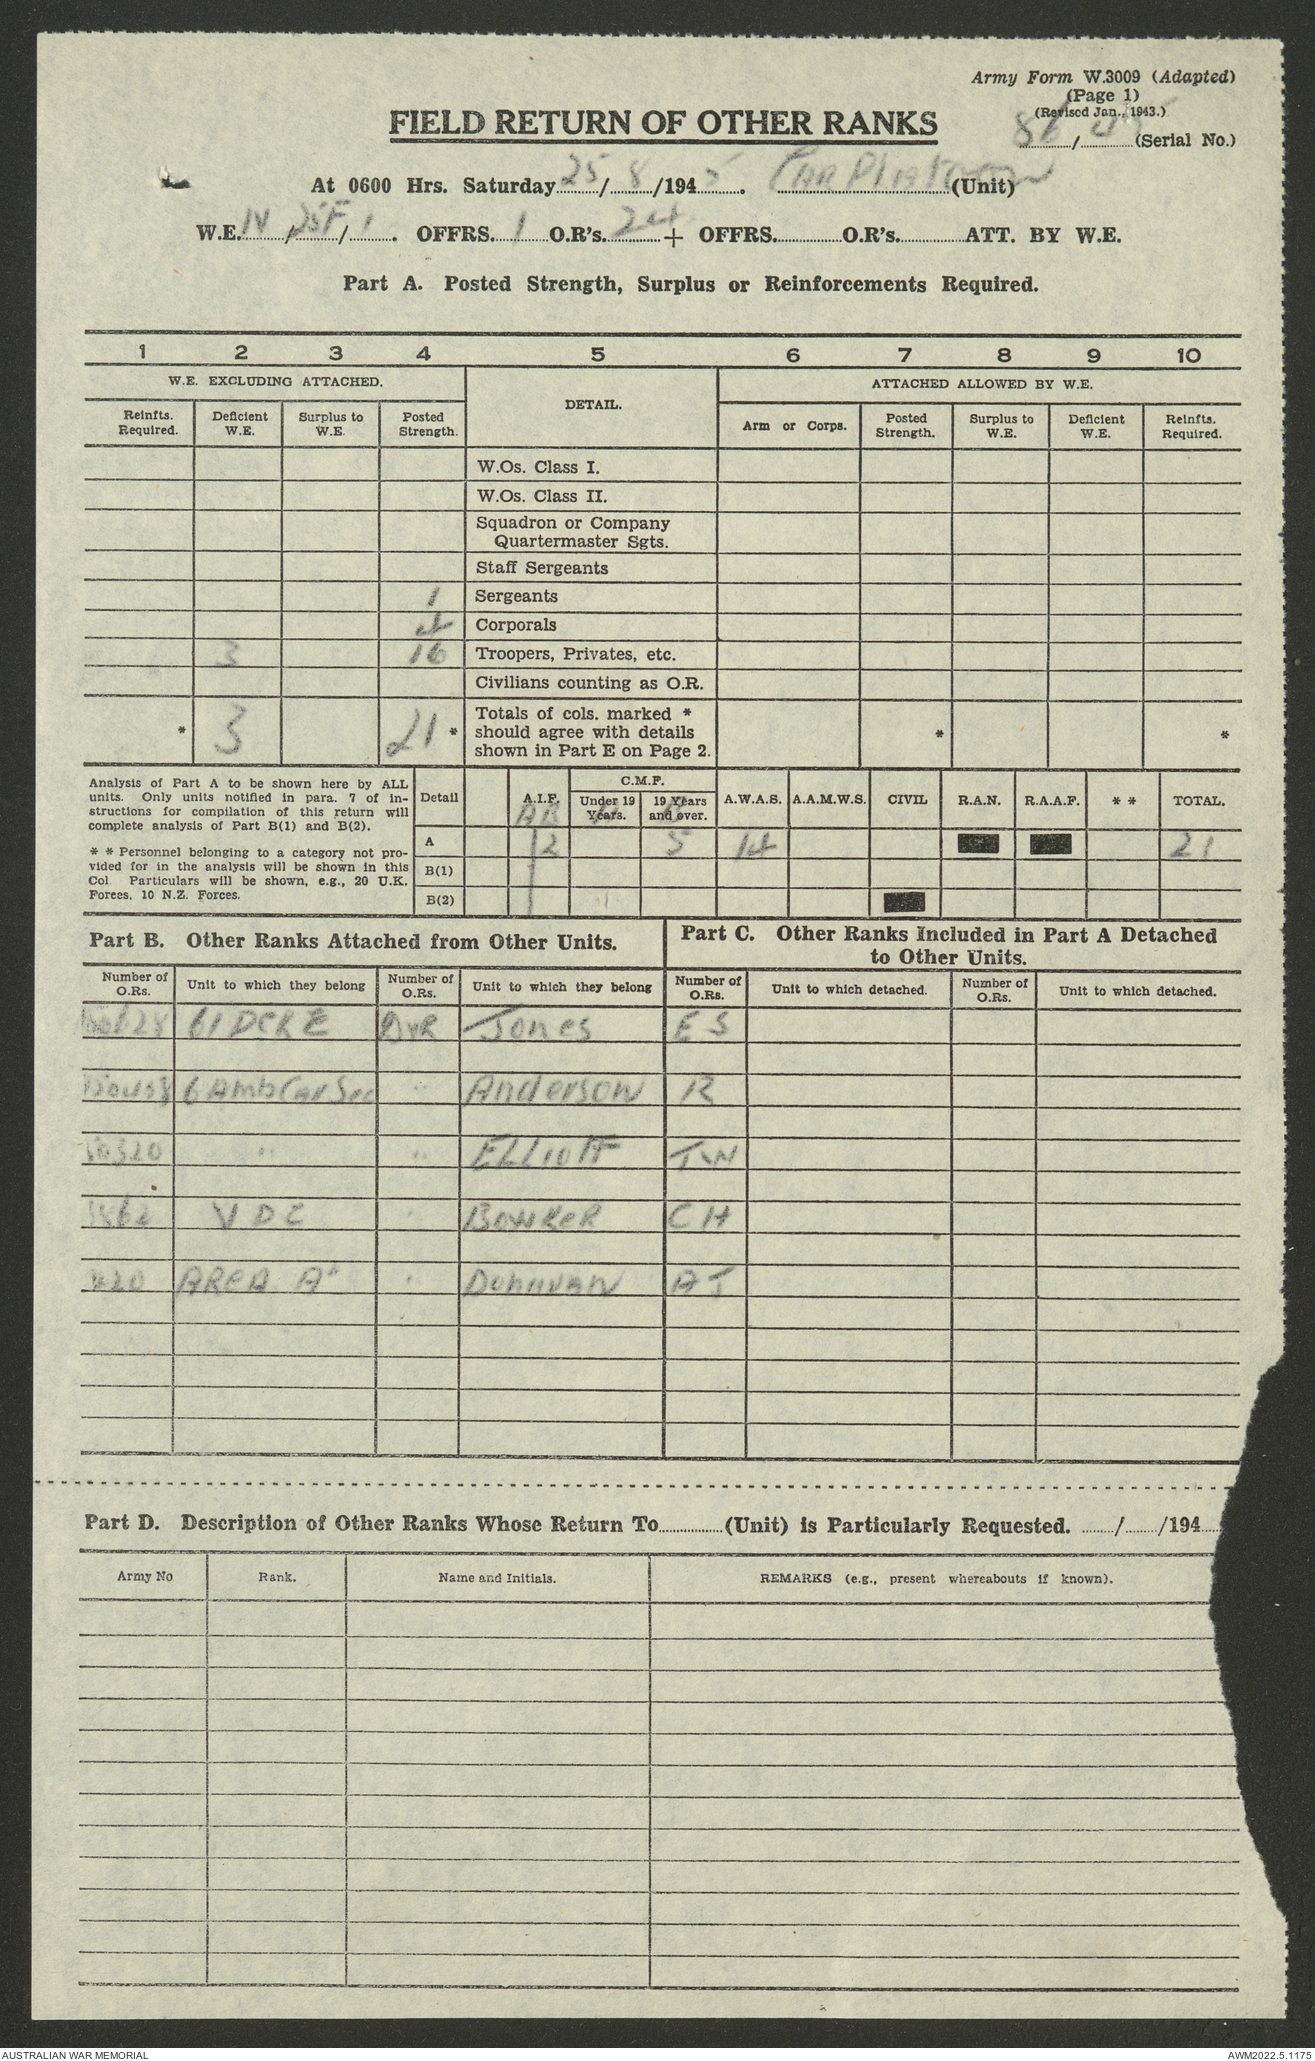 Army Form W.3009 (Adapted)
(Page 1)
(Revised Jan., 1943.)
FIELD RETURN OF OTHER RANKS
86/4 (Serial No.)
At 0600 Hrs. Saturday 25/8/1945. Car Platoon (Unit)
W.E. IV /25F/1. OFFRS. 1 O.R's. 24 + OFFRS. O.R's. ATT. BY W.E.
Part A. Posted Strength, Surplus or Reinforcements Required.
1 2 3 4 5 6 7 8 9 10
W.E. EXCLUDING ATTACHED. DETAIL. ATTACHED ALLOWED BY W.E.
Reinfts. Required. Deficient W.E. Surplus to W.E. Posted Strength. Arm or Corps. Posted Strength. Surplus to W.E. Deficient W.E. Reinfts. Required.
W.Os. Class I.
W.Os. Class II.
Squadron or Company
Quartermaster Sgts.
Staff Sergeants
1 Sergeants
4 Corporals
3 16 Troopers, Privates, etc.
Civilians counting as O.R.
Totals of cols. marked *
* 3 21 * should agree with details * *
shown in Part E on Page 2.
Analysis of Part A to be shown here by ALL
units. Only units notified in para. 7 of in-
structions for compilation of this return will
complete analysis of Part B(1) and B(2).
* * Personnel belonging to a category not pro-
vided for in the analysis will be shown in this
Col. Particulars will be shown, e.g., 20 U.K.
Forces, 10 N.Z. Forces.
C.M.F.
Detail A.I.F. Under 19 Years. 19 Years and over. A.W.A.S. A.A.M.W.S. CIVIL R.A.N. R.A.A.F. * * TOTAL.
A B A B
A 2 5 14 21
B(1)
B(2)
Part B. Other Ranks Attached from Other Units.
Part C. Other Ranks Included in Part A Detached
to Other Units.
Number of O.Rs. Unit to which they belong Number of O.Rs. Unit to which they belong Number of O.Rs. Unit to which detached. Number of O.Rs. Unit to which detached.
61 DCRE DVR Jones E S
6 Amb Car Sec " Anderson R
" " Elliott T W
VDC " Bowker C H
AREA A " Donovan A J
Part D. Description of Other Ranks Whose Return To (Unit) is Particularly Requested. / /194
Army No Rank. Name and Initials. REMARKS (e.g., present whereabouts if known).
AUSTRALIAN WAR MEMORIAL
AWM2022.5.1175